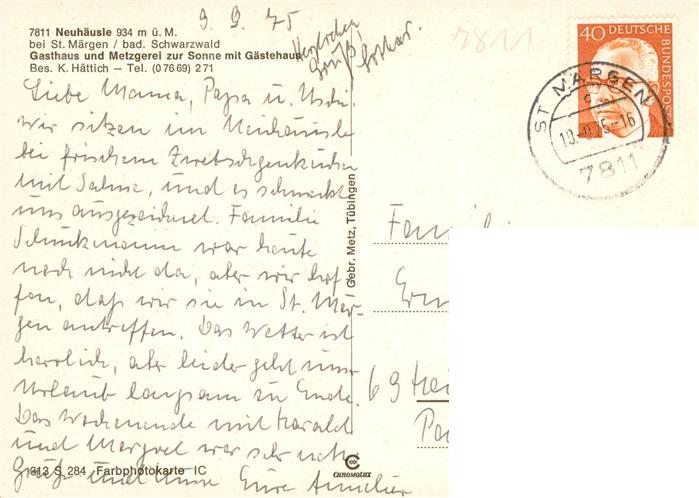 7811 Neuhäusle 934 m ü. M.
bei St. Märgen / bad. Schwarzwald
Gasthaus und Metzgerei zur Sonne mit Gästehaus
Bes. K. Hättich – Tel. (07669) 271
9. 9. 75
Herzlichen
Gruß!
Lothar.
7811
40 DEUTSCHE
BUNDESPOST
ST. MÄRGEN
10.-9.75-16
7811
Liebe Mamma, Papa u. Uschi,
wir sitzen im Neuhäusle
bei frischem Zwetschgenkuchen
mit Sahne, und es schmeckt
uns ausgezeichnet. Familie
Schuckmann war heute
noch nicht da, aber wir hof-
fen, daß wir sie in St. Mär-
gen antreffen. Das Wetter ist
herrlich, aber leider geht unser
Urlaub langsam zu Ende.
Das Wochenende mit Harald
und Margret war sehr nett.
Grüße und Eure
1813 S 284 Farbphotokarte IC
Gebr. Metz, Tübingen
CHROMOLUX
Familie
69